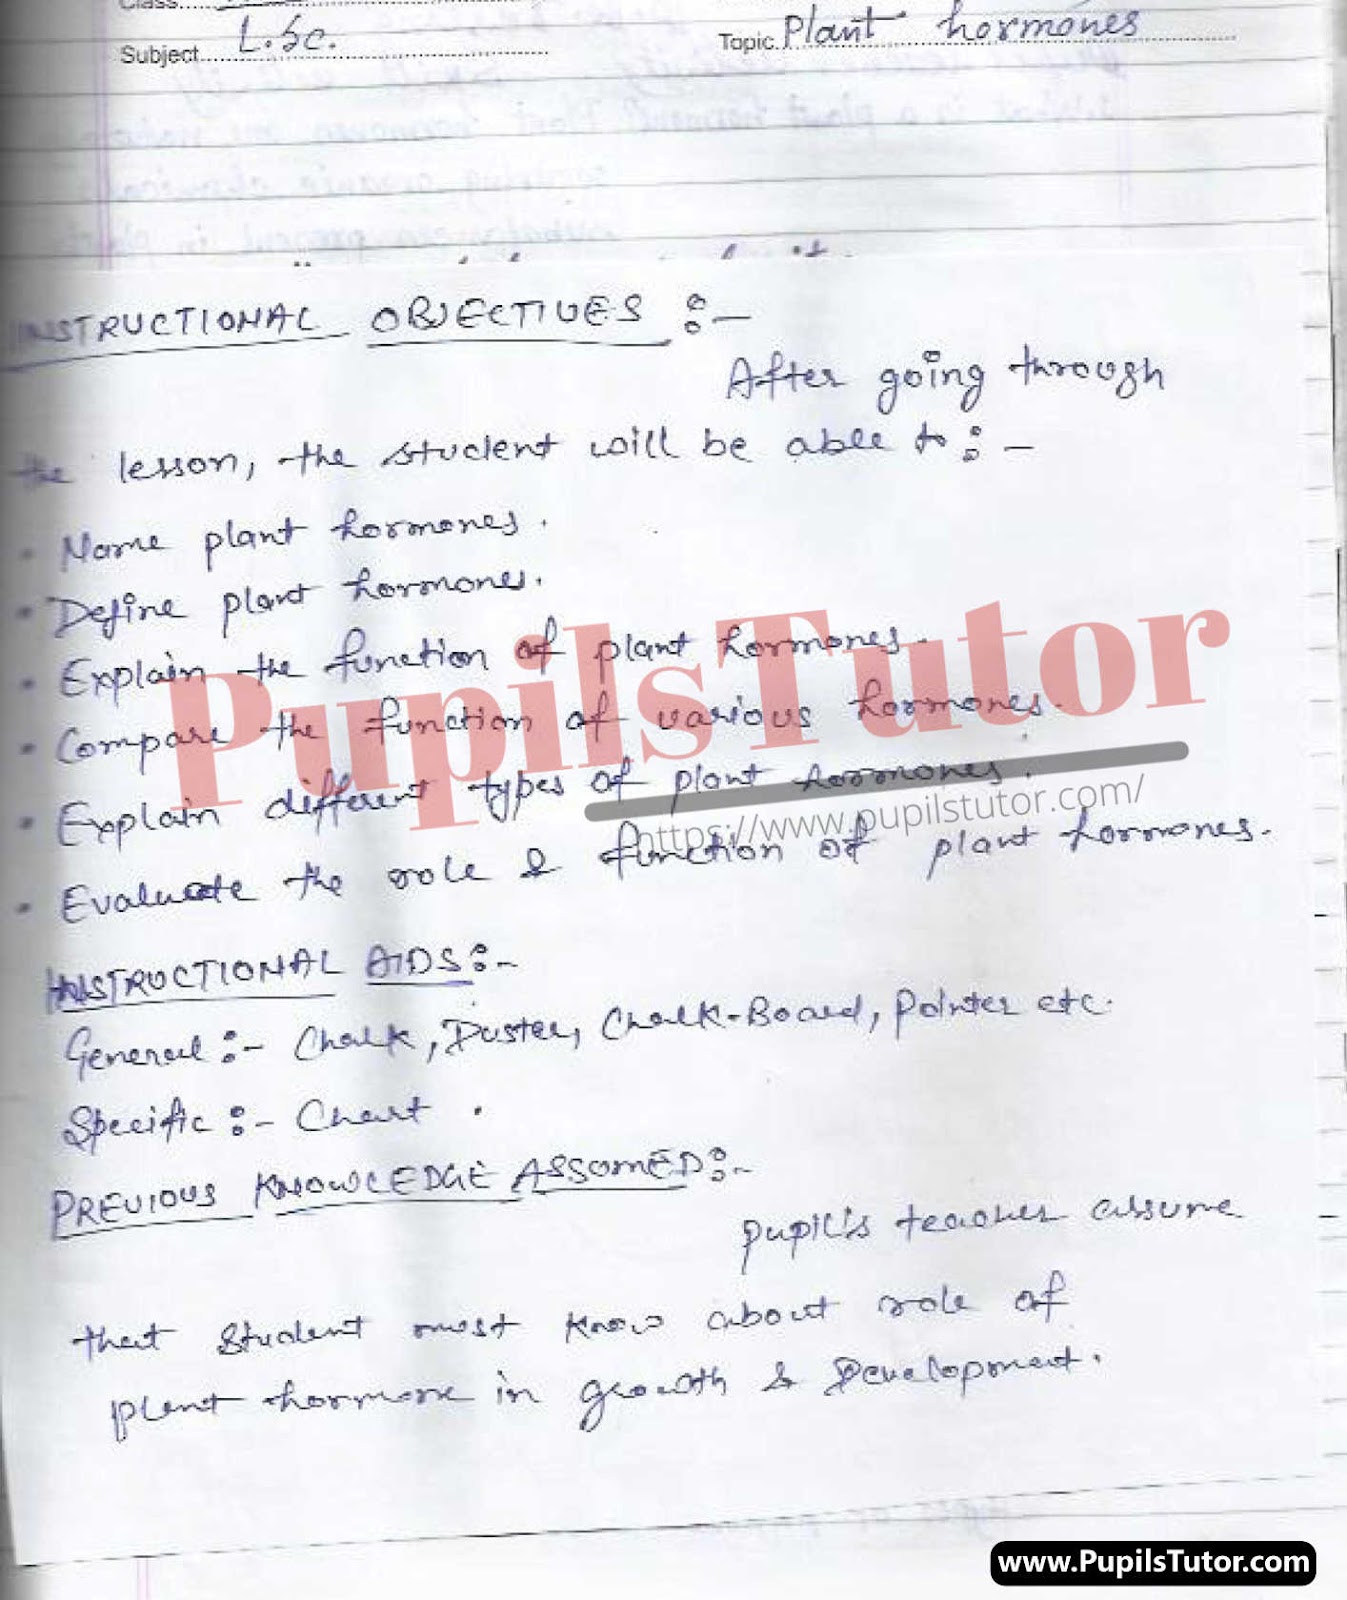 Class
Subject L.Sc.
Topic Plant hormones
INSTRUCTIONAL OBJECTIVES :-
After going through
the lesson, the student will be able to :-
• Name plant hormones.
• Define plant hormones.
• Explain the function of plant hormones.
• Compare the function of various hormones.
• Explain different types of plant hormones.
• Evaluate the role & function of plant hormones.
PupilsTutor
https://www.pupilstutor.com/
INSTRUCTIONAL AIDS :-
General :- Chalk, Duster, Chalk-Board, Pointer etc.
Specific :- Chart .
PREVIOUS KNOWLEDGE ASSUMED :-
pupil's teacher assume
that student must know about role of
plant hormone in growth & Development.
www.PupilsTutor.com